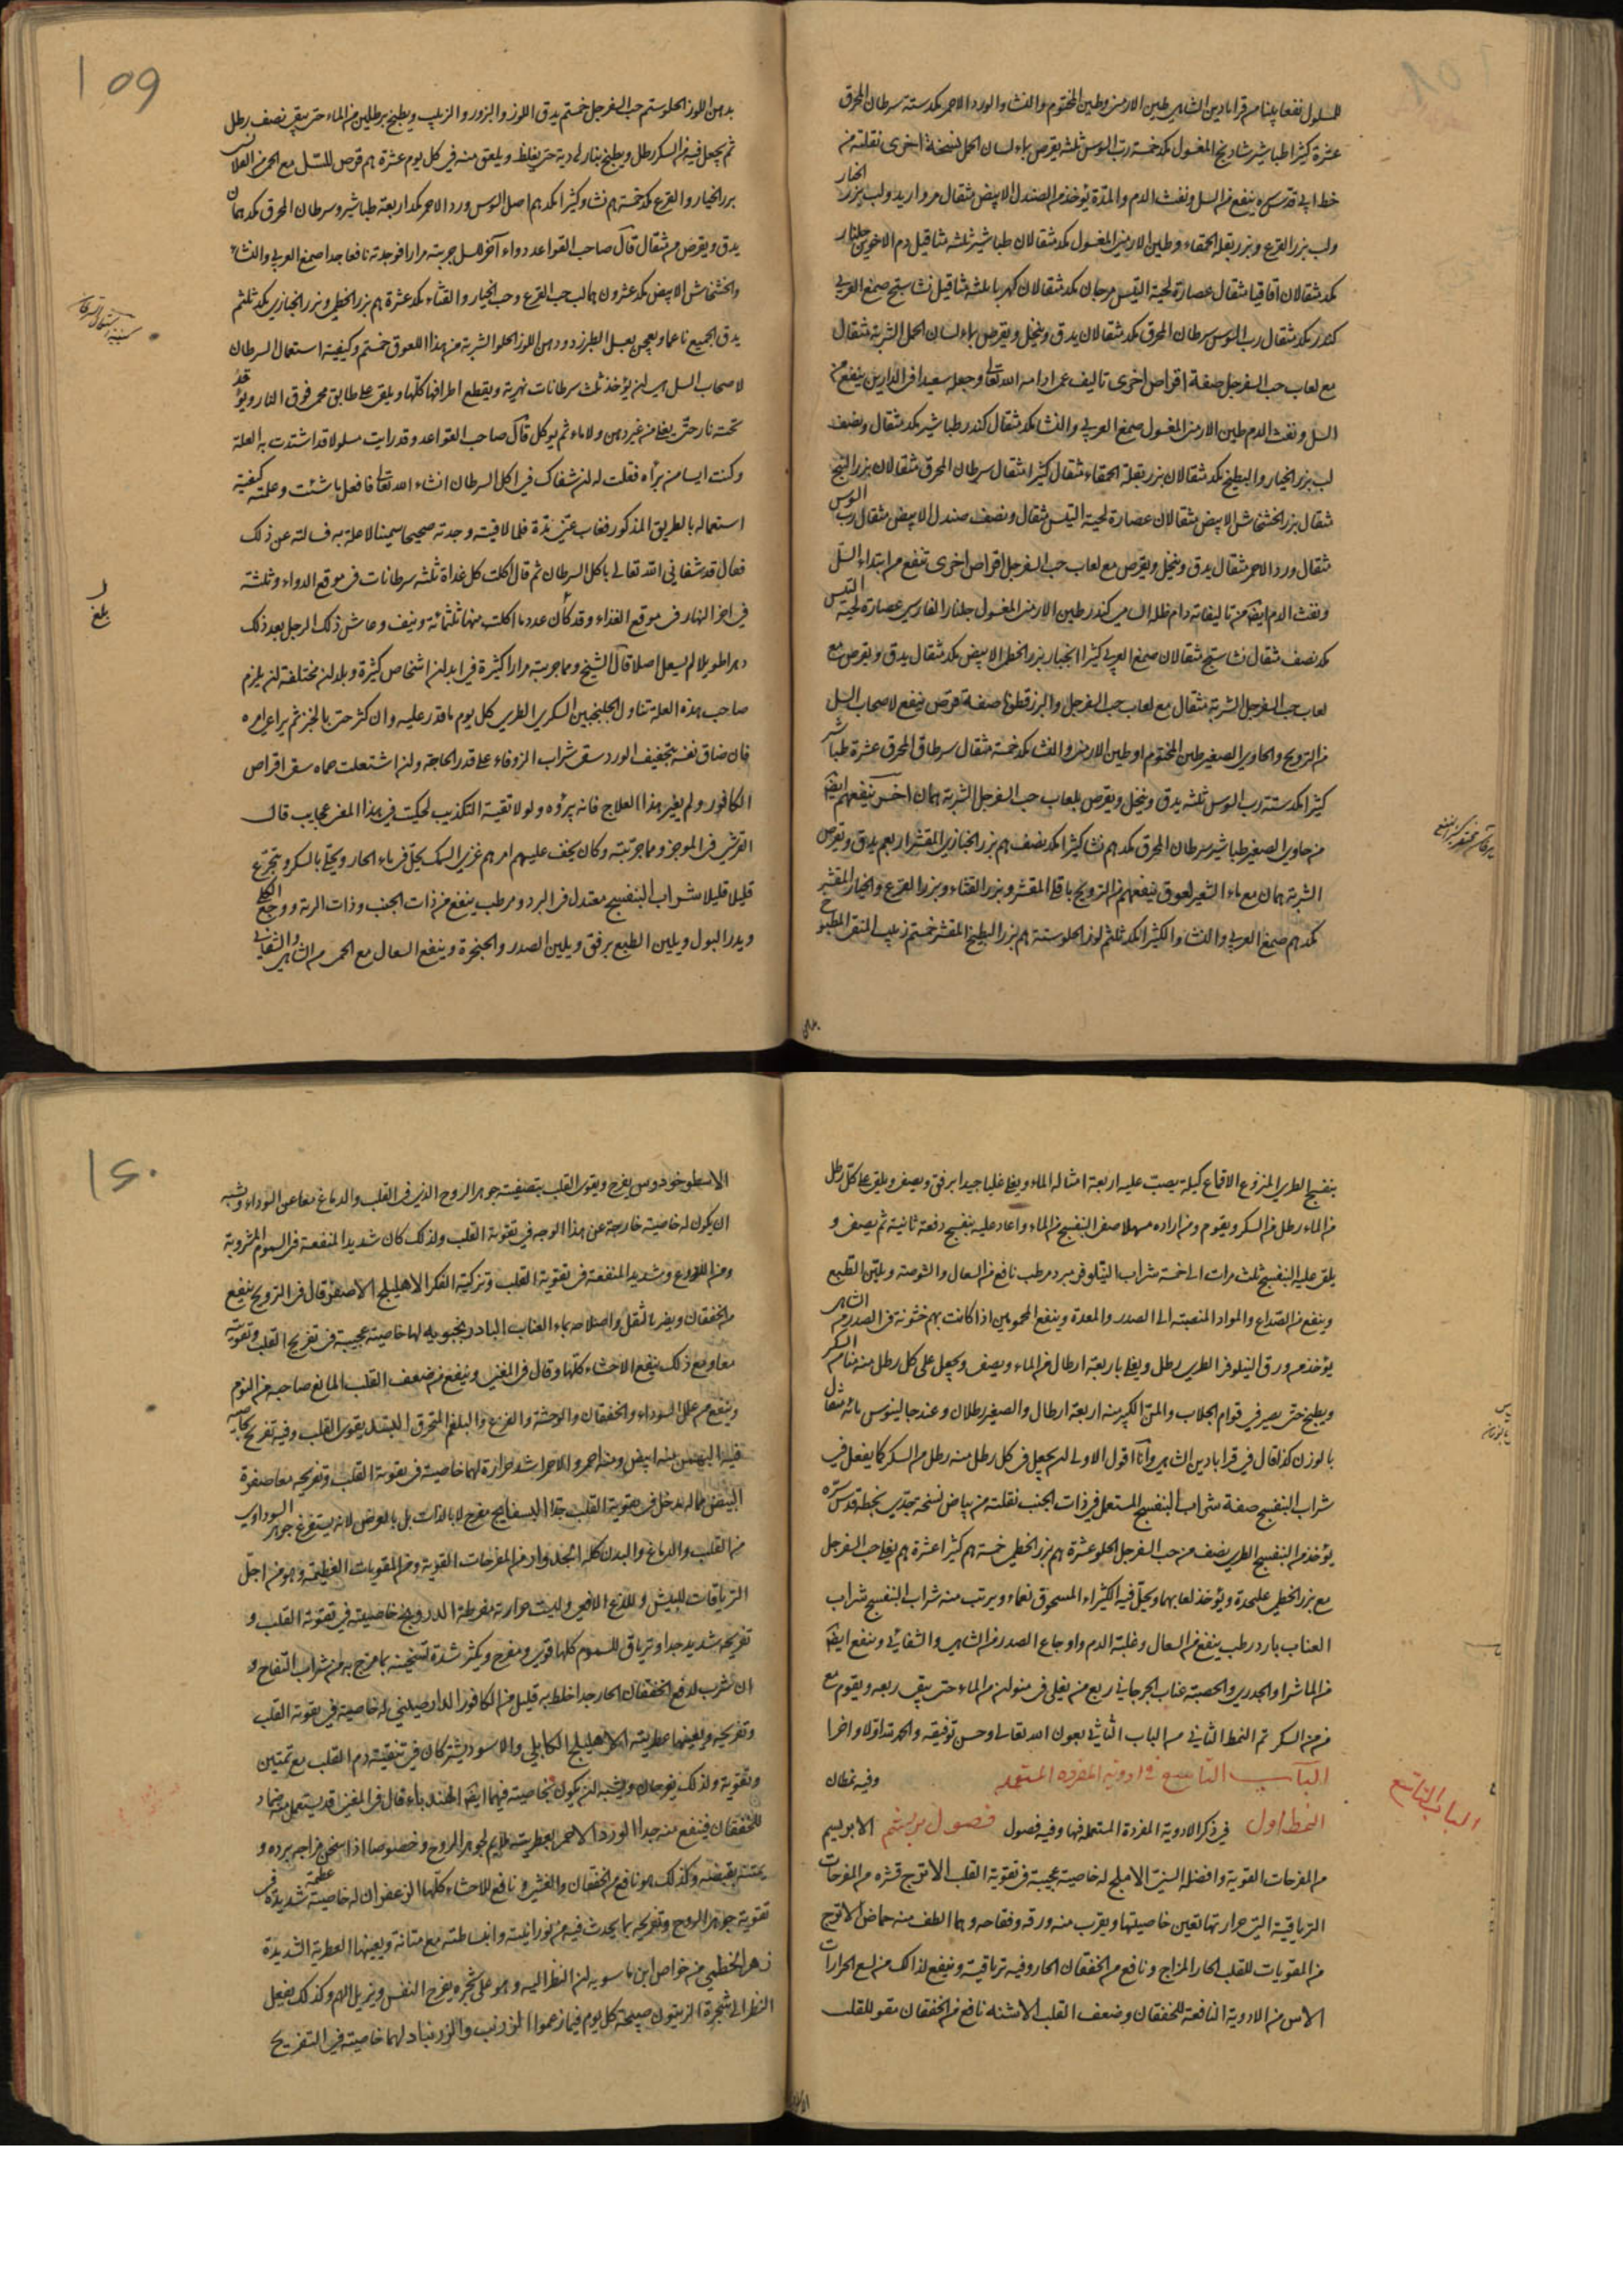 للمسلول نفعا بينا من قرابادين الشاهي طين الارمني وطين المختوم والنشا والورد الاحمر مكد ستة سرطان المحرق
عشرة كثيرا طباشير شاديخ المغسول مكد خمسة رب السوس ثلثة يقرص بماء لسان الحمل لنسخة اخرى نقلته من
خط ابي قدس سره ينفع من السل ونفث الدم والمدة يؤخذ من الصندل الابيض مثقال مرواريد ولب بزر الخيار
ولب بزر القرع وبزر بقلة الحمقاء وطين الارمني المغسول مكد مثقالان طباشير ثلثة مثاقيل دم الاخوين جلنار
مكد مثقالان اقاقيا مثقال عصارة لحية التيس مرجان مكد مثقالان كهربا ثلثة مثاقيل نشاستج صمغ العربي
كندر مكد مثقال رب السوس سرطان المحرق مكد مثقالان يدق وينخل ويقرص بماء لسان الحمل الشربة مثقال
مع لعاب حب السفرجل صفة اقراص اخرى تاليف عمي ادامه الله تعالى وجعله سعيدا في الدارين ينفع من
السل ونفث الدم طين الارمني المغسول صمغ العربي والنشا مكد مثقال كندر طباشير مكد مثقال ونصف
لب بزر الخيار والبطيخ مكد مثقالان بزر بقلة الحمقاء مثقال كثيرا مثقال سرطان المحرق مثقالان بزر البنج
مثقال بزر الخشخاش الابيض مثقالان عصارة لحية التيس مثقال ونصف صندل الابيض مثقال رب السوس
مثقال ورد الاحمر مثقال يدق وينخل ويقرص مع لعاب حب السفرجل اقراص اخرى تنفع من ابتداء السل
ونفث الدم ايضا من تاليفاته دام ظله السامي كندر طين الارمني المغسول جلنار الفارسي عصارة لحية التيس
مكد نصف مثقال نشاستج مثقالان صمغ العربي كثيرا انجبار بزر الخطمي الابيض مكد مثقال يدق ويقرص مع
لعاب حب السفرجل الشربة مثقال مع لعاب حب السفرجل والبزرقطونا صفة قرص ينفع لاصحاب السل
من الترويح والحاوي الصغير طين المختوم او طين الارمني والنشا مكد خمسة مثقال سرطان المحرق عشرة طباشير
كثيرا مكد ستة رب السوس ثلثة يدق وينخل ويقرص بلعاب حب السفرجل الشربة همان اخر ينفعهم ايضا
من حاوي الصغير طباشير سرطان المحرق مكد هم نشا كثيرا مكد نصف هم بزر الخبازي المقشر اربعم يدق ويقرص
الشربة همان مع ماء الشعير لعوق ينفعهم من الترويح باقلا المقشر وبزر القثاء وبزر القرع والخيار المقشر
مكد هم صمغ العربي والنشا والكثيرا مكد ثلثم لوز الحلو ستة هم بزر البطيخ المقشر خمستم زبيب المنقى المطبوخ
بدهن اللوز الحلو ستم حب السفرجل خمستم يدق اللوز والبزور والزبيب ويطبخ برطلين من الماء حتى يبقى نصف رطل
ثم يجعل فيه من السكر رطل ويطبخ بنار لينة حتى يغلظ ويلعق منه في كل يوم عشرة هم قرص للسل مع الحمى من القلانسي
بزر الخيار والقرع مكد خمسة هم نشا وكثيرا مكدهم اصل السوس ورد الاحمر مكد اربعة طباشير وسرطان المحرق مكد همان
يدق ويقرص من مثقال قال صاحب القواعد دواء آخر للسل جربته مرارا فوجدته نافعا جدا صمغ العربي والنشا
والخشخاش الابيض مكد عشرون هما لب حب القرع وحب الخيار والقثاء مكد عشرة هم بزر الخطمي وبزر الخبازي مكد ثلثم
يدق الجميع ناعما ويعجن بعسل الطبرزد ودهن اللوز الحلو الشربة من هذا اللعوق خمستم وكيفية استعمال السرطان
لاصحاب السل هي ان يؤخذ ثلث سرطانات نهرية ويقطع اطرافها كلها ويلقى على طابق محمى فوق النار ويوقد
تحته نار حتى يغلى من غير دهن ولا ماء ثم يوكل قال صاحب القواعد وقد رايت مسلولا قد اشتدت به العلة
وكنت ايسا من برأه فقلت له ان شفاك في اكل السرطان انشاء الله تعالى فافعل ما شئت وعلمته كيفية
استعماله بالطريق المذكور فغاب عني مدة فلما لاقيته وجدته صحيحا سمينا لا علة به فسالته عن ذلك
فقال قد شفاني الله تعالى باكل السرطان ثم قال اكلت كل غداة ثلثة سرطانات في موقع الدواء وثلثة
في اخر النهار في موقع الغذاء وقد كان عدد ما اكلت منها ثلثمائة ونيف وعاش ذلك الرجل بعد ذلك
دهرا طويلا لم يسعل اصلا قال الشيخ ومما جربته مرارا كثيرة في ابدان اشخاص كثيرة وبلدان مختلفة ان يلزم
صاحب هذه العلة تناول الجلنجبين السكري الطري كل يوم ما قدر عليه وان كثر حتى بالخبز ثم يراعى امره
فان ضاق نفسه بتجفيف الورد سقى شراب الزوفاء على قدر الحاجة وان اشتعلت حماه سقى اقراص
الكافور ولم يغير هذا العلاج فانه يبرؤه ولولا تقية التكذيب لحكيت في هذا المعنى عجايب قال
القرشي في الموجز ومما جربته وكان يخف عليهم امرهم غرى السمك يحل في ماء الحار ويحلى بالسكر ويتجرع
قليلا قليلا شراب البنفسج معتدل في البرد ومرطب ينفع من ذات الجنب وذات الرية ووجع الكلى
ويدر البول ويلين الطبع برفق ويلين الصدر والحنجرة وينفع السعال مع الحمى من الشاهي والشفائي
109
بلغ
بنفسج الطري المنزوع الاقماع كيلة يصب عليه اربعة امثاله الماء ويغلى غليا جيدا برفق ويصفى ويلقى على كل رطل
من الماء رطل من السكر ويقوم ومن اراده مسهلا صفى البنفسج من الماء واعاد عليه بنفسج دفعة ثانية ثم يصفى و
يلقى عليه البنفسج ثلث مرات الى خمسة شراب النيلوفر مبرد مرطب نافع من السعال والشوصة ويلين الطبع
وينفع من الصداع والمواد المنصبة الى الصدر والمعدة وينفع المحمومين اذا كانت بهم خشونة في الصدر من الشاهي
يؤخذ من ورق النيلوفر الطري رطل ويغلى باربعة ارطال من الماء ويصفى ويجعل على كل رطل منه منا من السكر
ويطبخ حتى يصير في قوام الجلاب والمن الكبير منه اربعة ارطال والصغير رطلان وعند جالينوس مائة مثقال
بالوزن كذا قال في قرابادين الشاهي وانا اقول الاولى ان يجعل في كل رطل منه رطل من السكر كما يفعل في
شراب البنفسج صفة شراب البنفسج المستعمل في ذات الجنب نقلته من بياض نسخة جدي بخطه قدس سره
يؤخذ من البنفسج الطري نصف من حب السفرجل الحلو عشرة هم بزر الخطمي خمسة هم كثيرا عشرة هم يغلى حب السفرجل
مع بزر الخطمي عليحدة ويؤخذ لعابهما ويحل فيه الكثيراء المسحوق نعماء ويرتب منه شراب البنفسج شراب
العناب بارد رطب ينفع من السعال وغلبة الدم واوجاع الصدر من الشاهي والشفائي وينفع ايضا
من الماشرا والجدري والحصبة عناب الجرجاني ربع من يغلى في منوان من الماء حتى يبقى ربعه ويقوم مع
من من السكر تم النمط الثاني من الباب الثامن بعون الله تعالى وحسن توفيقه والحمد لله اولا واخرا
الباب التاسع في ادوية المفردة المستعملة وفيه نمطان
النمط اول في ذكر الادوية المفردة المستعملة فيها وفيه فصول فصول الابريسم
من المفرحات القوية وافضله السني الاملج له خاصية عجيبة في تقوية القلب الاترج قشره من المفرحات
الترياقية التي حرارتها تعين خاصيتها ويقرب منه ورقه وفقاحه وهما الطف منه حماض الاترج
من المقويات للقلب الحار المزاج ونافع من الخفقان الحار وفيه ترياقية وينفع لذلك من لسع الحرارات
الاس من الادوية النافعة للخفقان وضعف القلب الاشنه نافع من الخفقان مقو للقلب
الباب التاسع
الاسطوخودوس يفرح ويقوي القلب بتصفيته جوهر الروح الذي في القلب والدماغ معا عن السوداء ويشبه
ان يكون له خاصية خارجة عن هذا الوجه في تقوية القلب ولذلك كان شديد المنفعة من السموم المشروبة
ومن اللدوغ وشديد المنفعة في تقوية القلب وتزكية الفكر الاهليلج الاصفر قال في الترويح ينفع
من الخفقان ويضر بالثقل واصلاحه بماء العناب البادرنجبويه لها خاصية عجيبة في تفريح القلب وتقويته
معا ومع ذلك ينفع الاحشاء كلها وقال في المغني وينفع من ضعف القلب المانع صاحبه من النوم
وينفع من علل السوداء والخفقان والوحشة والفزع والبلغم المحترق البسد يقوي القلب وفيه تفريح
فيه البهمين منه ابيض ومنه احمر والاحمر اشد حرارة لهما خاصية في تقوية القلب وتفريحه معا صفرة
البيض مما له مدخل في تقوية القلب جدا البسفايج مفرح لا بالذات بل بالعرض لانه يستفرغ جوهر السوداوي
من القلب والدماغ والبدن كله الجدوار من المفرحات القوية ومن المقويات العظيمة وهو من اجل
الترياقات للبيش وللدغ الافعي وليست حرارته مفرطة الدرونج خاصيته في تقوية القلب و
تفريحه شديد جدا وترياق للسموم كلها قوي ومفرح ويكثر شدة تسخينه بما مزج به من شراب التفاح و
ان شرب لدفع الخفقان الحار جدا خلط به قليل من الكافور الدارصيني له خاصية في تقوية القلب
وتفريحه ويعينها عطريته الاهليلج الكابلي والاسود يشتركان في تنقية دم القلب مع تمتين
وتقوية ولذلك يفرحان ويشبه ان يكون بخاصية فيهما ايضا الهندباء قال في المغني قد يستعمل منه ضماد
للخفقان فينفع منه جدا الورد الاحمر بعطريته ملايم لجوهر الروح وخصوصا اذا سخن مزاجه ببرده و
يمتنه بقبضه وكذلك هو نافع من الخفقان والغشي ونافع للاحشاء كلها الزعفران له خاصية شديدة عظيمة في
تقوية جوهر الروح وتفريحه بما يحدث فيه من نورانية وانبساطه مع متانة ويعينها العطرية الشديدة
زهر الخطمي من خواص ابن ماسويه ان النظر اليه وهو على شجره يفرح النفس ويزيل الهم وكذلك يفعل
النظر الى شجرة الزيتون صبيحة كل يوم فيما زعموا الزرنب والزرنباد لهما خاصية في التفريح
160